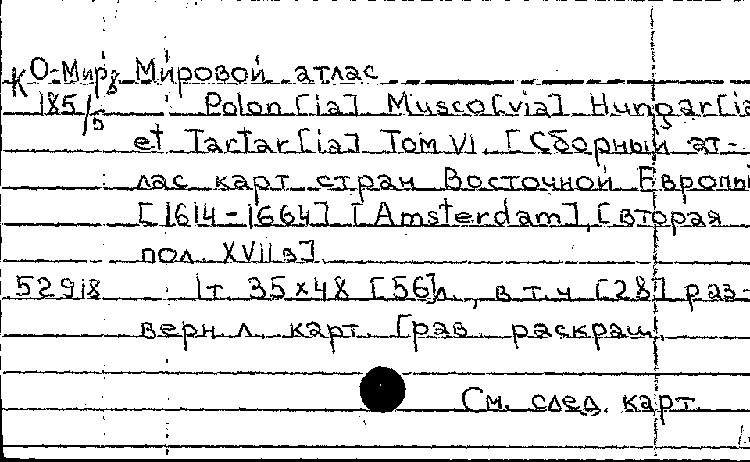 К О-Мир8 Мировой атлас
185/5 Polon[ia] Musco[via] Hungar[ia
et Tartar[ia] Том VI. [Сборный ат-
лас карт стран Восточной Европы
[1614-1664] [Amsterdam], [вторая
пол. XVII в].
52918 1т. 35x48 [56]л., в т.ч [28] раз-
верн л. карт. [рав. раскраш.
См. след. карт.